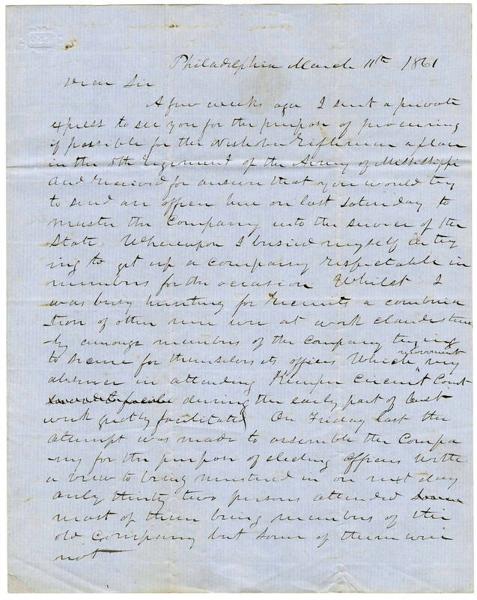 Philadelphia March 11th 1861
Dear Sir
A few weeks ago I sent a private
express to see you for the purpose of procuring
if possible for the Rifleman a place
in the 5th regement of the Army of Mississippi
and received for answer that you would try
to send an officer here on last Saturday to
muster the Company into the service of the
State. Whereupon I busied myself in try
ing to get up a company respectable in
numbers for the occasion Whilst I
was busy hunting for recruits a combina
tion of other men were at work clandestine
ly amongst members of the Company trying
to secure for themselves its offices Which movement my
absence in attending Kemper Circuit Court
during the early part of last
week greatly facilitated On Friday last the
attempt was made to assemble the Compa
ny for the purpose of electing officers with
a view to being mustered in on next day
only thirty two persons attended
most of them being members of the
old Company but some of them were
not